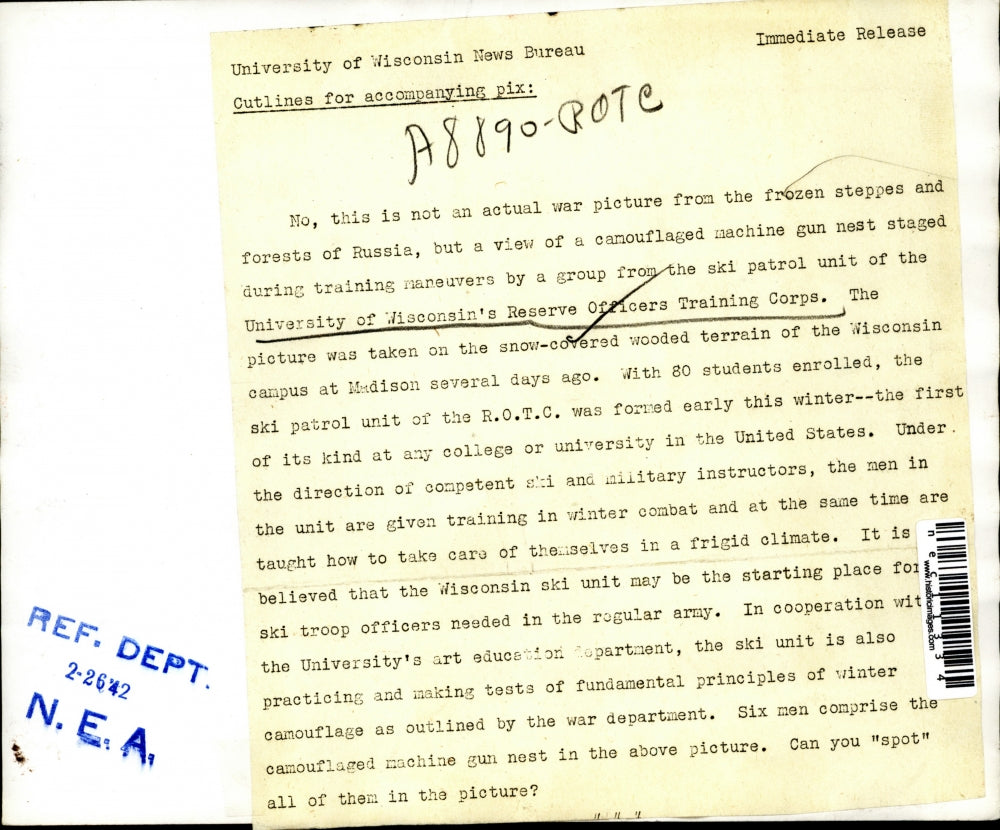 University of Wisconsin News Bureau
Immediate Release
Cutlines for accompanying pix:
A8890-ROTC
No, this is not an actual war picture from the frozen steppes and
forests of Russia, but a view of a camouflaged machine gun nest staged
during training maneuvers by a group from the ski patrol unit of the
University of Wisconsin's Reserve Officers Training Corps. The
picture was taken on the snow-covered wooded terrain of the Wisconsin
campus at Madison several days ago. With 80 students enrolled, the
ski patrol unit of the R.O.T.C. was formed early this winter--the first
of its kind at any college or university in the United States. Under
the direction of competent ski and military instructors, the men in
the unit are given training in winter combat and at the same time are
taught how to take care of themselves in a frigid climate. It is
believed that the Wisconsin ski unit may be the starting place for
ski troop officers needed in the regular army. In cooperation wit
the University's art education department, the ski unit is also
practicing and making tests of fundamental principles of winter
camouflage as outlined by the war department. Six men comprise the
camouflaged machine gun nest in the above picture. Can you "spot"
all of them in the picture?
REF. DEPT.
2-26'42
N. E. A.
www.historicimages.com